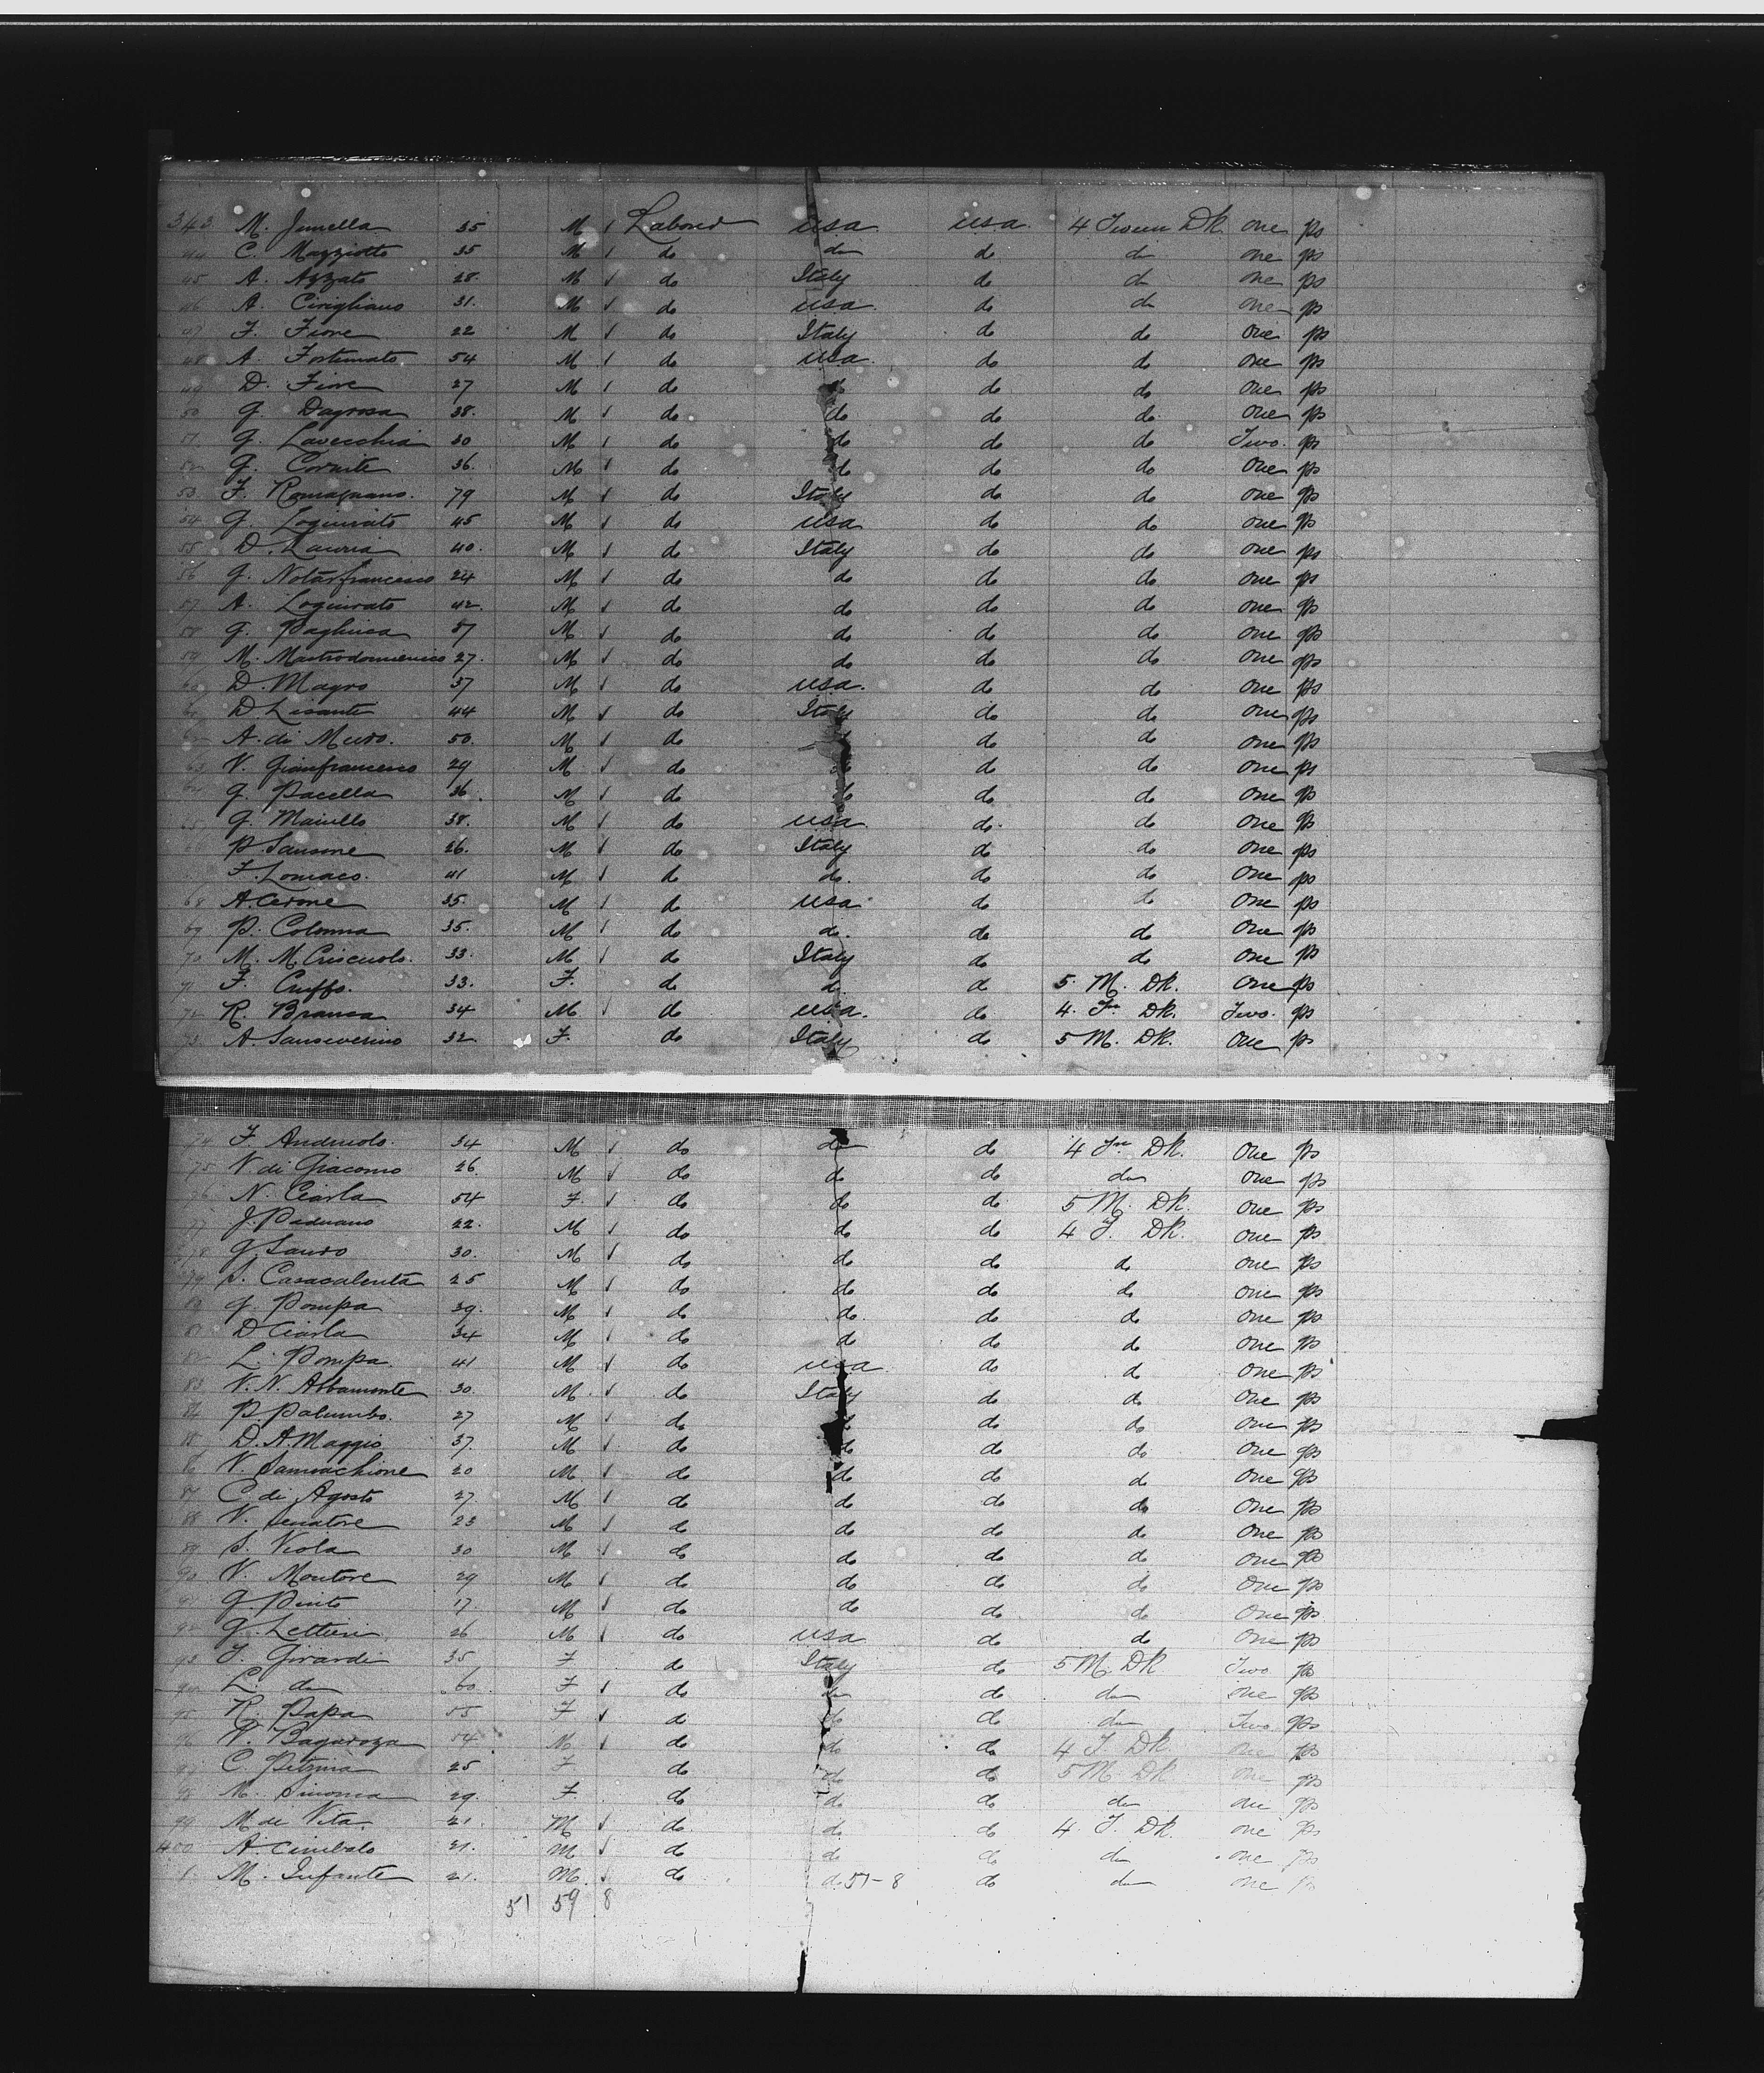 343 M. Junella 35 M Laborer usa usa 4 Tween Dk one ps
44 C. Mazziotto 35 M do do do do one ps
45 A. Azzato 28. M do Italy do do one ps
46 A. Cirigliano 31. M do usa do do one ps
47 F. Fiore 22 M do Italy do do one ps
48 A. Fortunato 54 M do usa. do do one ps
49 D. Fiore 27 M do do do do one ps
50 G. Dagrosa 38. M do do do do one ps
51. G. Lavecchia 30 M do do do do Two. ps
52 G. 36. M do do do do One ps
53 F. Romagnano. 79 M do Italy do do one ps
54 G. Loguirato 45 M do usa do do one ps
55 D. Lauria 40. M do Italy do do one ps
56 G. Notarfrancesco 24 M do do do do one ps
57 A. Loguirato 42. M do do do do one ps
58 G. Paglinca 37 M do do do do one ps
59 M. Mastrodomenico 27. M do do do do one ps
60 D. Magro 37 M do usa. do do one ps
61 D Lisanti 44 M do Italy do do one ps
62 A. di Muro. 50. M do do do one ps
63 V. Gianfrancesco 29 M do do do do one ps
64 G. Pacella 36. M do do do do one ps
65 G. Mainello 38. M do usa do. do one ps
66 P. Sansone 26. M do Italy do do one ps
F. Lomaco. 41 M do do. do do one ps
68 A. Cerone 35. M do usa do do one ps
69 P. Colonna 35. M do do. do do one ps
70 M. M. Criscuolo. 33. M do Italy do do one ps
71 F. Cuffo. 33. F. do do. do 5. M. Dk. One ps
72 R. Branca 34 M do usa. do 4. Tn Dk. Two. ps
73. A Sanseverino 32. F. do Italy do 5 M. Dk. one ps
74 F. Andriolo. 34 M do do do 4 Tn Dk. one ps
75 V. di Giacomo 26. M do do do do one ps
76 N. Ciarla 54 F do do do 5 M. Dk. one ps
77 J. Paduano 22. M do do do 4 T. Dk. one ps
78 G Sauro 30. M do do do do one ps
79 S. Casacalenta 25 M do do do do one ps
80 G. Pompa 39. M do do. do do one ps
81 D Ciarla 34 M do do do do one ps
82 L. Pompa. 41 M do usa do do one ps
83 V. N. Abbamonte 30. M. do Italy do do one ps
84 P. Palumbo. 27 M do do do do one ps
85 D. A. Maggio 37. M do do do do one ps
86 V. 20 M do do do do one ps
87 C. di Agosto 27. M do do do do one ps
88 V. Senatore 23 M do do do do one ps
89 S. Viola 30 M do do do do one ps
90 V. Montore 29 M do do do do one ps
91 G. Pinto 17. M do do do do one ps
92 G. Lettieri 26 M do usa do do one ps
93 F. Girardi 35 F do Italy do 5 M. Dk Two ps
94 L. do 60 F do do do do one ps
95 R. Papa 55 F do do do do Two ps
96 V. Bagaroza 54 M do do do 4 T Dk one ps
97 C. Petrina 25 F do do do 5 M Dk one ps
98 M. 29. F. do do do do one ps
99 M di Vita 21. M do do. do 4. T. Dk. one ps
400 A. Cimbalo 21. M do do do do one ps
1. M. Infante 21. M. do do 51-8 do do one ps
51 59 8